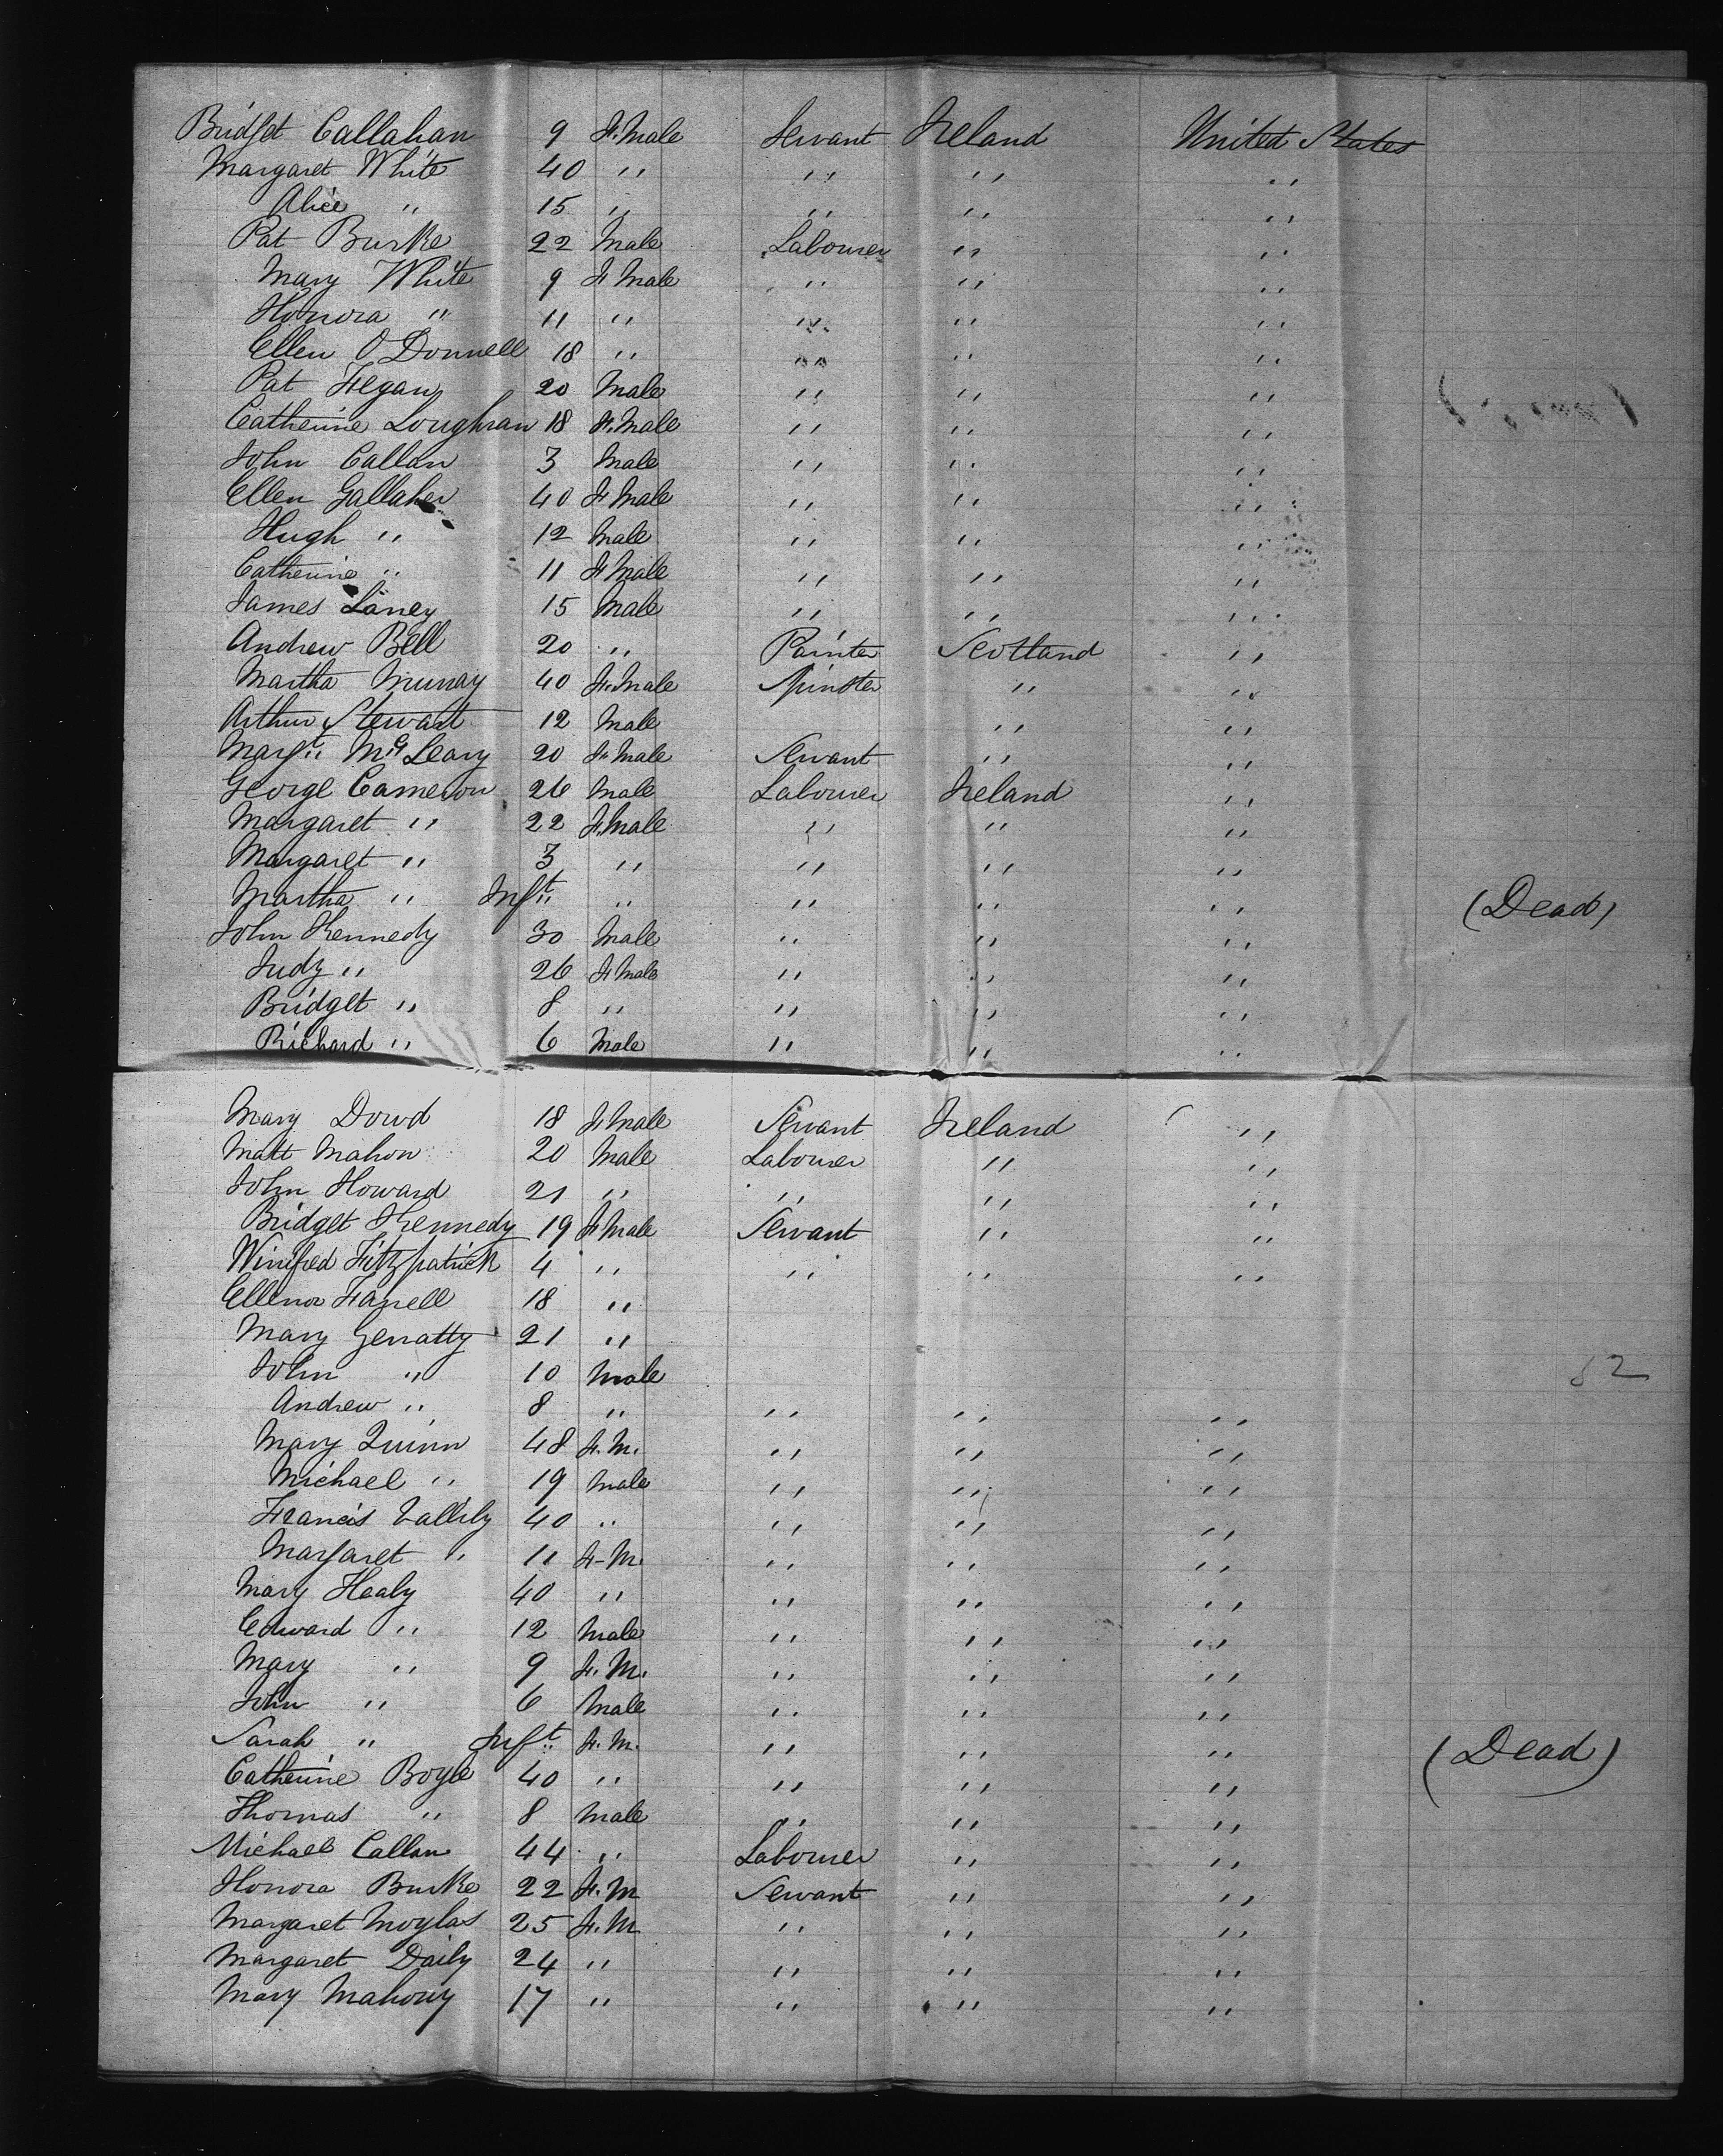 Bridget Callahan 9 F.Male Servant Ireland United States
Margaret White 40 " " " "
Alice " 15 " " " "
Pat Burke 22 Male Labourer " "
Mary White 9 F Male " " "
Honora " 11 " " " "
Ellen O Donnell 18 " " " "
Pat Fegan 20 Male " " "
Catherine Loughran 18 F.Male " " "
John Callan 3 Male " " "
Ellen Gallaher 40 F Male " " "
Hugh " 12 Male " " "
Catherine " 11 F Male " " "
James Laney 15 Male " " "
Andrew Bell 20 " Painter Scotland "
Martha Murray 40 F.Male Spinster " "
Arthur Stewart 12 Male " "
Margt. McLeary 20 F.Male Servant " "
George Cameron 26 Male Labourer Ireland "
Margaret " 22 F.Male " " "
Margaret " 3 " " " "
Martha " Inft. " " " " (Dead)
John Kennedy 30 Male " " "
Judy " 26 F Male " " "
Bridget " 8 " " " "
Richard " 6 Male " " "
Mary Dowd 18 F Male Servant Ireland "
Matt Mahon 20 Male Labourer " "
John Howard 21 " " " "
Bridget Kennedy 19 F Male Servant " "
Winifred Fitzpatrick 4 " " " "
Ellenor Farrell 18 "
Mary Gerratty 21 "
John " 10 Male
82
Andrew " 8 " " " "
Mary Quinn 48 F.M. " " "
Michael " 19 Male " " "
Francis Vallily 40 " " " "
Margaret " 11 F-M. " " "
Mary Healy 40 " " " "
Edward " 12 Male " " "
Mary " 9 F.M. " " "
John " 6 Male " " "
Sarah " Inft. F.M. " " " (Dead)
Catherine Boyle 40 " " " "
Thomas " 8 Male " " "
Michael Callan 44 " Labourer " "
Honora Burke 22 F.M Servant " "
Margaret Moylas 25 F.M " " "
Margaret Daily 24 " " " "
Mary Mahony 17 " " " "